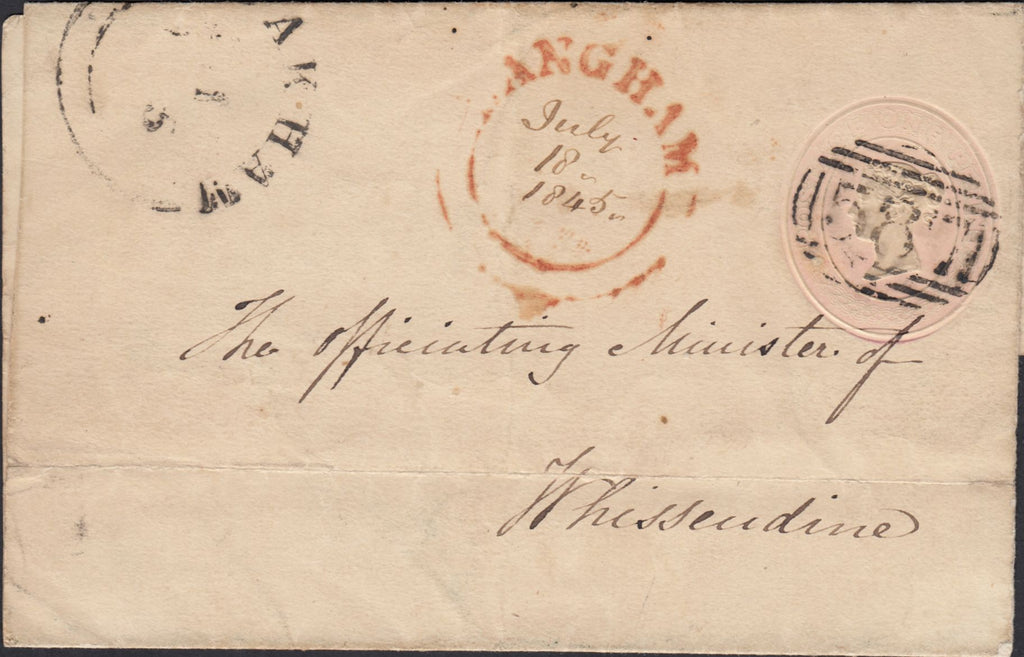 AKHAM
ANGHAM
July
18
1845
The Officiating Minister of
Whissendine